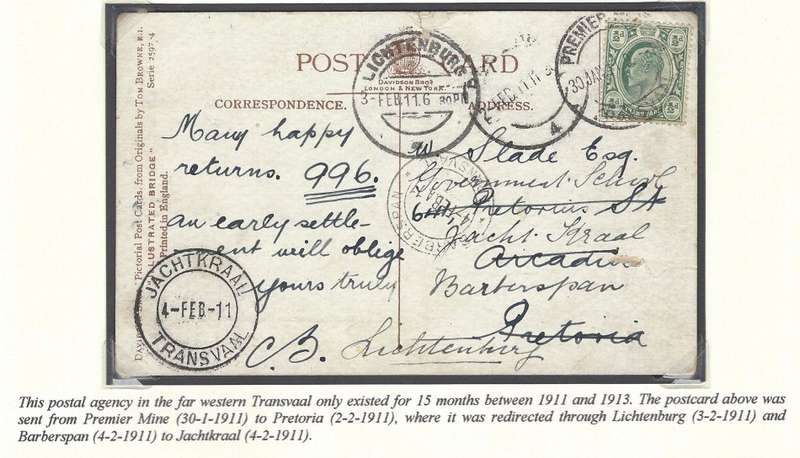 POST CARD
DAVIDSON BROS
LONDON & NEW YORK.
CORRESPONDENCE.
ADDRESS.
Pictorial Post Cards, from Originals by TOM BROWNE, R.I.
"ILLUSTRATED BRIDGE" Series 2597-4
Printed in England.
LICHTENBURG
3-FEB.11.6 30PM
4
PREMIER
30 JAN
BARBERSPAN
JACHTKRAAL
4-FEB-11
TRANSVAAL
Many happy
returns. 996.
an early settle-
ment will oblige
yours truly
C.B.
Slade Esq.
Government School
Pretorius St
Jacht Kraal
Arcadia
Barberspan
Pretoria
Lichtenburg
This postal agency in the far western Transvaal only existed for 15 months between 1911 and 1913. The postcard above was
sent from Premier Mine (30-1-1911) to Pretoria (2-2-1911), where it was redirected through Lichtenburg (3-2-1911) and
Barberspan (4-2-1911) to Jachtkraal (4-2-1911).